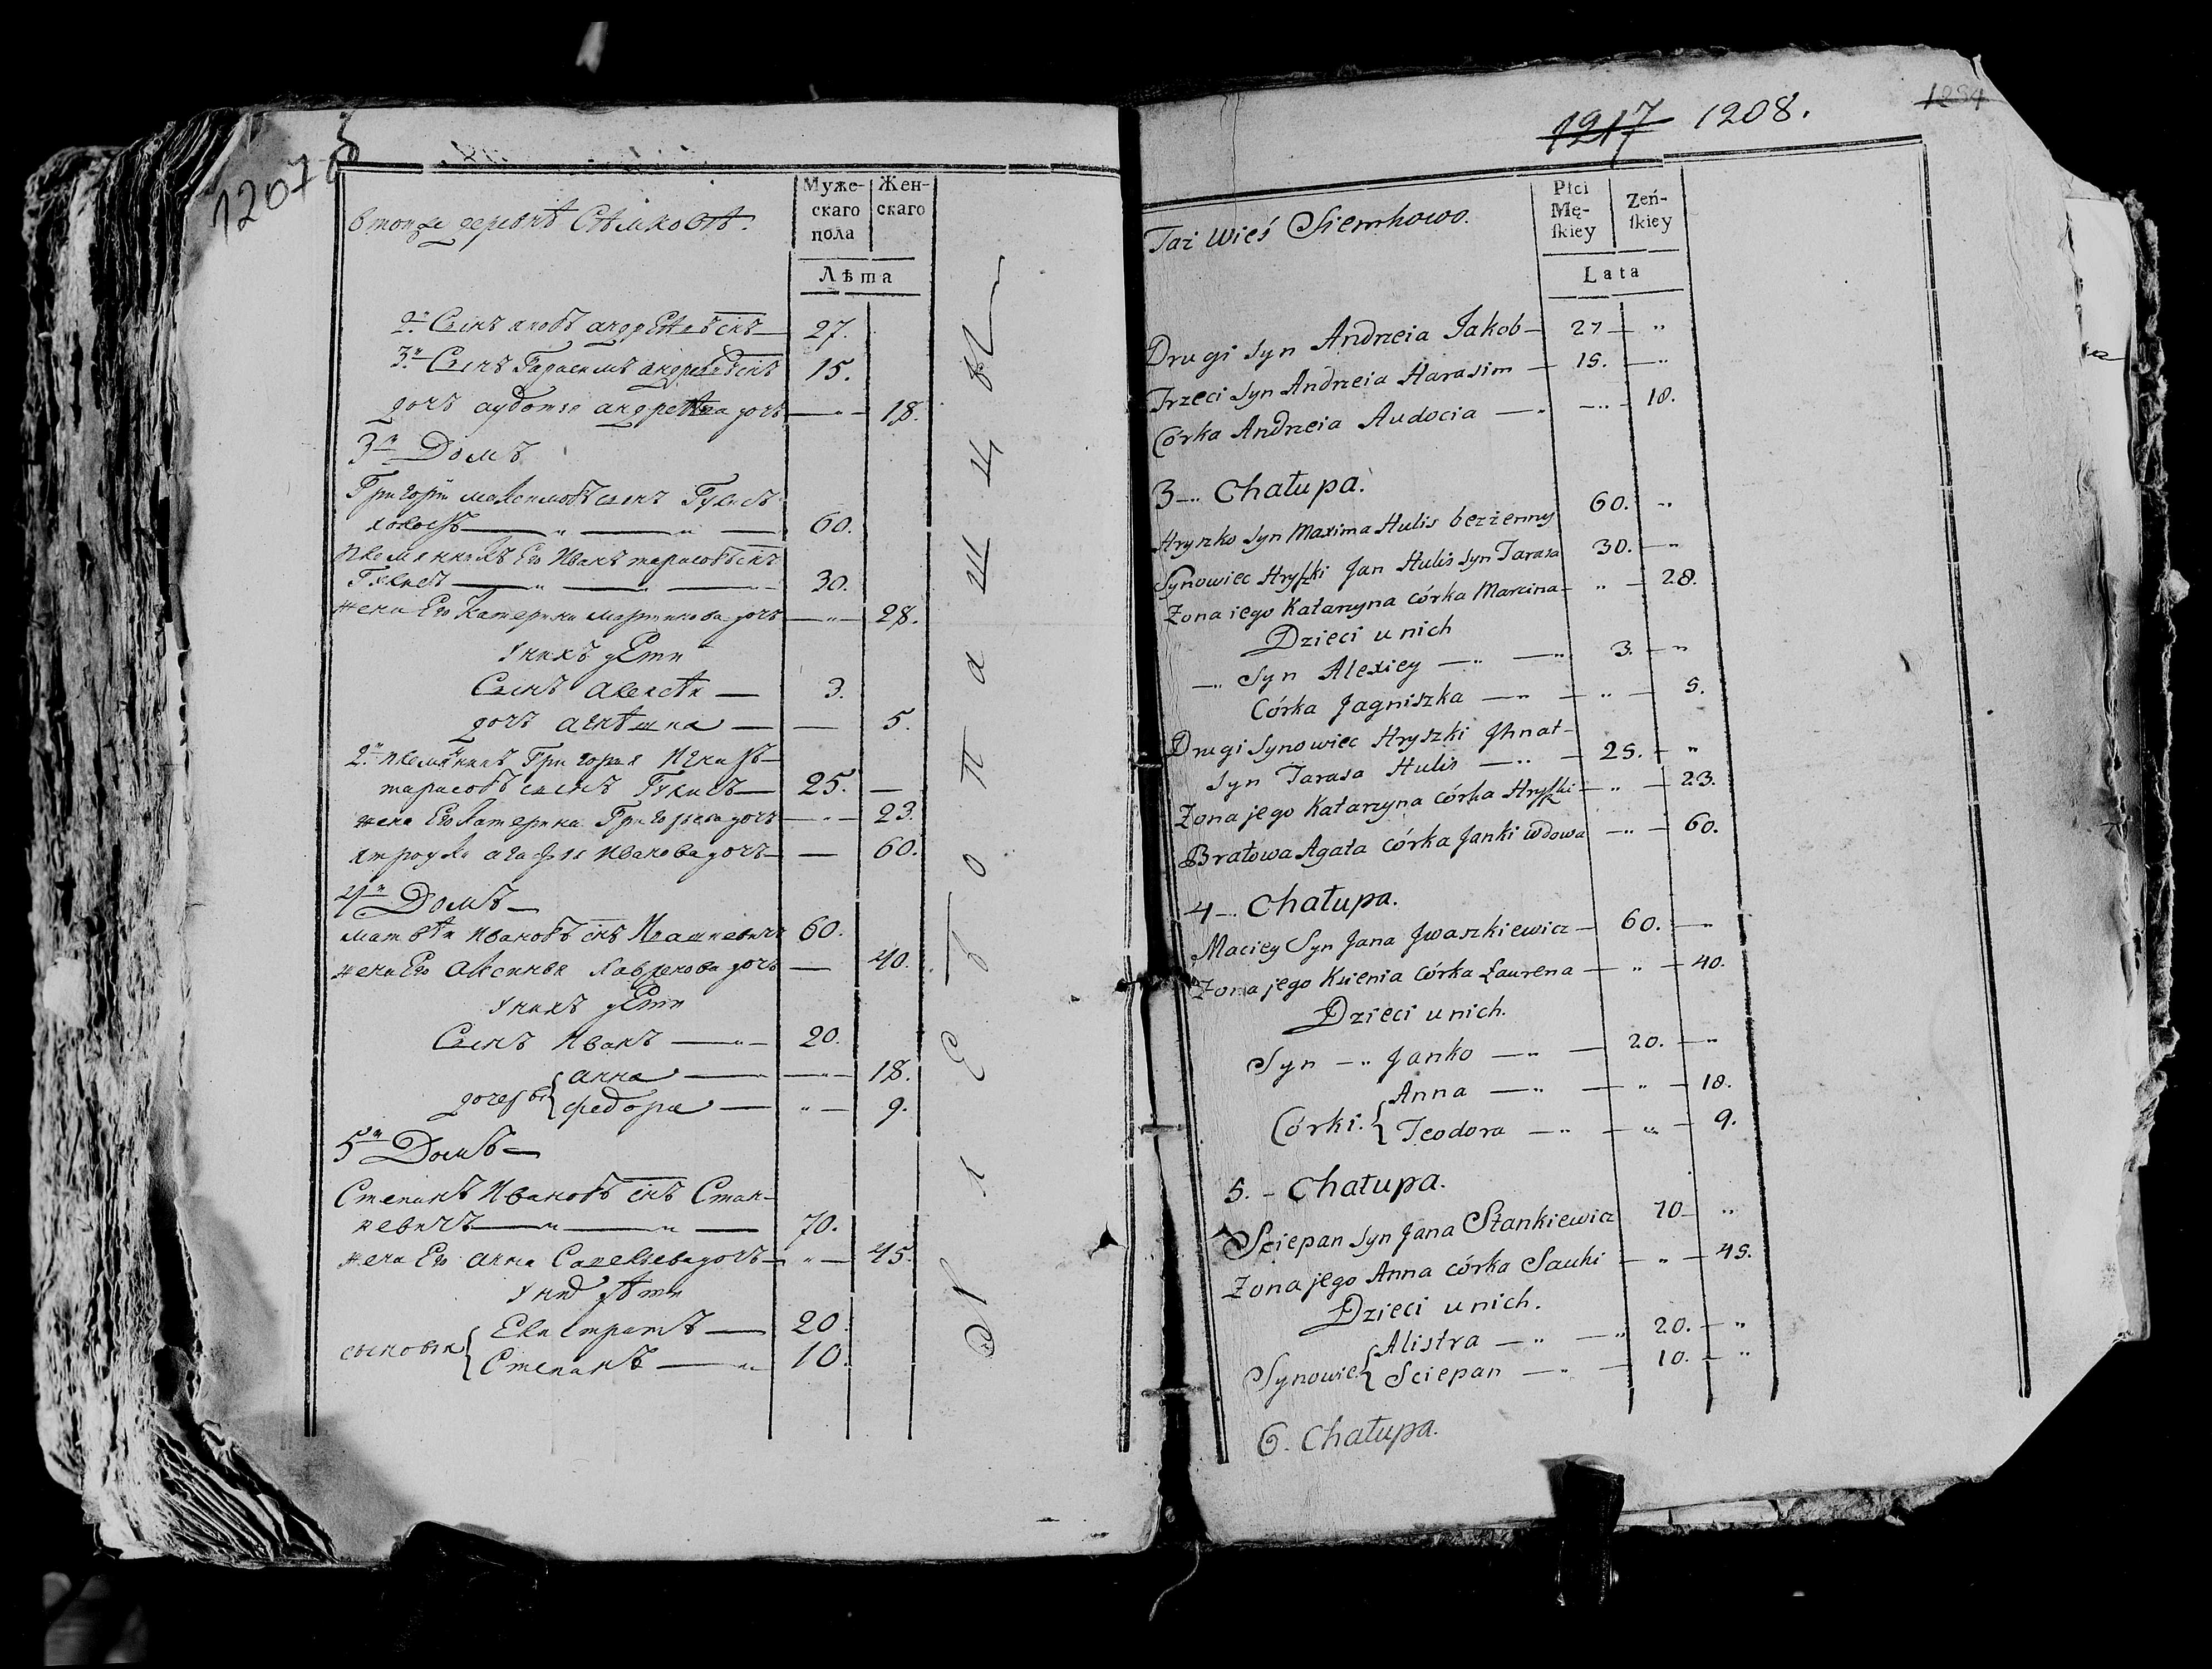 в тойже деревнѣ Сѣмковѣ.
Муже-
скаго
пола
Жен-
скаго
Лѣта
2й Сынъ яковъ андрѣевъ снъ — 27.
3й Сынъ Гарасимъ андреевъ снъ 15.
дочь аудотья андреева дочь — " — 18.
3й Домъ
Григорій максимовъ сынъ Гулисъ
холостъ — " — " — 60.
племянникъ Его Иванъ тарасовъ снъ
Гулисъ — " — " — 30.
жена Его Катерина мартинова дочь — " — 28.
У нихъ дети
Сынъ алексѣй — 3.
дочь агнѣшка — — 5.
2й племянникъ Григорья Игнатъ
тарасовъ сынъ Гулисъ — 25. —
жена Его катерина Григорьева дочь — " — 23.
ятровка агафья Иванова дочь — — 60.
4й Домъ —
матвѣй Ивановъ снъ Ивашкевичъ 60.
жена Его Аксинья лавренова дочь — 40.
У нихъ дети
Сынъ Иванъ — " — 20.
дочери { анна — " — " — 18.
федора — " — 9.
5й Домъ —
Степанъ Ивановъ снъ Стан-
кевичъ — " — " — 70.
жена Его анна Савельева дочь — " — 45.
У них дѣти
сыновья { Евистратъ — 20.
Степанъ — " 10.
1917 1208.
Taż Wieś Siemkowo.
Płci
Mę-
ſkiey
Żeń-
ſkiey
Lata
Drugi syn Andrzeia Jakob — 27 — "
Trzeci syn Andrzeia Harasim — 15. — "
Córka Andrzeia Audocia — " — " — 18.
3 — " Chałupa.
Hryszko syn Maxima Hulis bezżenny 60. — "
Synowiec Hryſzki Jan Hulis syn Tarasa 30. — "
Żona iego Katarzyna córka Marcina — " — 28.
Dzieci u nich
— " Syn Alexiey — " — " 3. — "
Córka Jagniszka — " — " — 5.
Drugi synowiec Hryszki Jhnat —
syn Tarasa Hulis — " — 25. — "
Żona jego Katarzyna córka Hryſzki — " — 23.
Bratowa Agata córka Janki wdowa — " — 60.
4 — " Chałupa.
Maciey Syn Jana Jwaszkiewicz — 60. — "
Żona jego Ksienia córka Łaurena — " — 40.
Dzieci u nich.
Syn — " Janko — " — 20. — "
Córki. { Anna — " — " — 18.
Teodora — " — " — 9.
5. — Chałupa.
Sciepan syn Jana Stankiewicz 70 — "
Żona jego Anna córka Sauki — " — 45.
Dzieci u nich.
Synowie { Alistra — " — " 20. — "
Sciepan — " — 10. — "
6. Chałupa.